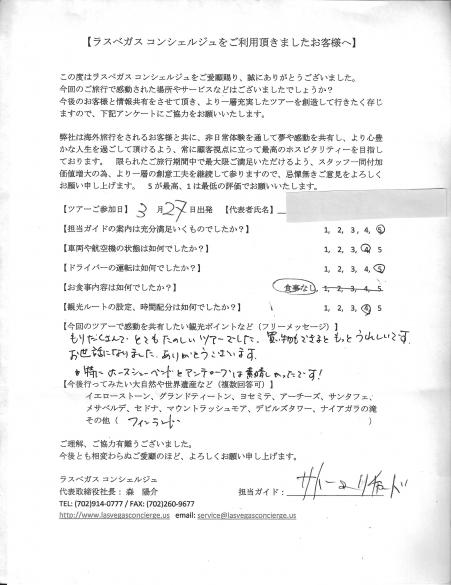 【ラスベガス コンシェルジュをご利用頂きましたお客様へ】
この度はラスベガス コンシェルジュをご愛顧賜り、誠にありがとうございました。
今回のご旅行で感動された場所やサービスなどはございましたでしょうか?
今後のお客様と情報共有をさせて頂き、より一層充実したツアーを創造して行きたく存じ
ますので、下記アンケートにご協力をお願いします。
弊社は海外旅行をされるお客様と共に、非日常体験を通して夢や感動を共有し、より心豊
かな人生を過ごして頂けるよう、常に顧客視点に立って最高のホスピタリティーを目指し
ております。 限られたご旅行期間中で最大限ご満足いただけるよう、スタッフ一同付加
価値増大の為、より一層の創意工夫を継続して参りますので、忌憚無きご意見をよろしく
お願い申し上げます。 5が最高、1は最低の評価でお願いいたします。
【ツアーご参加日】 3 月 27 日出発 【代表者氏名】
【担当ガイドの案内は充分満足いくものでしたか?】 1, 2, 3, 4, 5
【車両や航空機の状態は如何でしたか?】 1, 2, 3, 4, 5
【ドライバーの運転は如何でしたか?】 1, 2, 3, 4, 5
【お食事内容は如何でしたか?】 食事なし, 1, 2, 3, 4, 5
【観光ルートの設定、時間配分は如何でしたか?】 1, 2, 3, 4, 5
【今回のツアーで感動を共有したい観光ポイントなど(フリーメッセージ)】
もりだくさんで とても たのしい ツアーでした。買い物もできると もっと うれしいです。
お世話になりました。ありがとうございます。
特に ホースシューベンドと アンテロープは 素晴しかったです!
【今後行ってみたい大自然や世界遺産など(複数回答可)】
イエローストーン、グランドティートン、ヨセミテ、アーチーズ、サンタフェ、
メサベルデ、セドナ、マウントラッシュモア、デビルズタワー、ナイアガラの滝
その他:( フィンランド )
ご理解、ご協力有難うございました。
今後とも相変わらぬご愛顧のほど、よろしくお願い申し上げます。
ラスベガス コンシェルジュ
代表取締役社長: 森 陽介 担当ガイド:
TEL: (702)914-0777 / FAX: (702)260-9677
http://www.lasvegasconcierge.us email: service@lasvegasconcierge.us